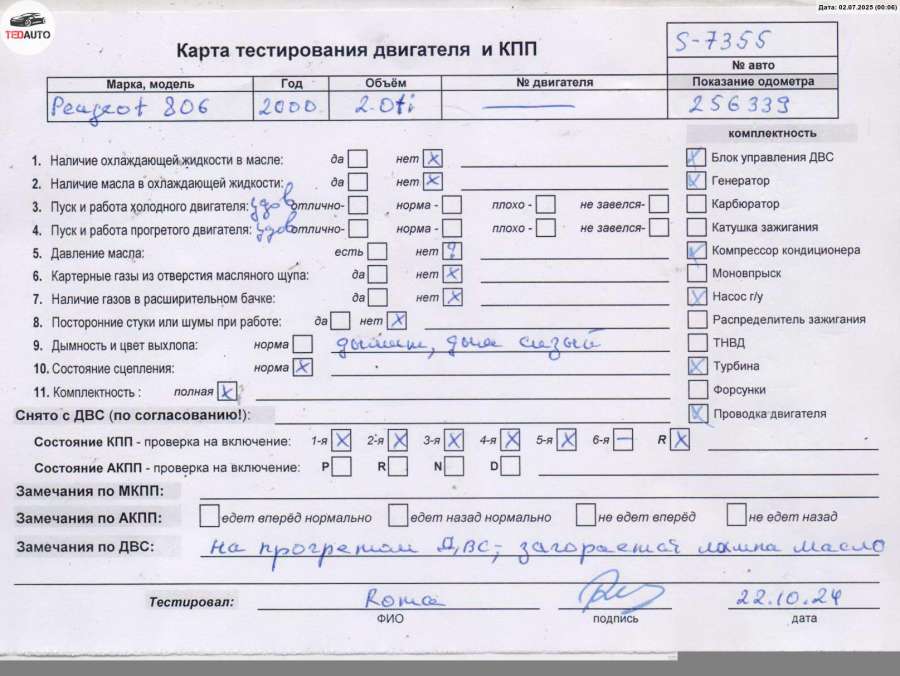 TEDAUTO
Дата: 02.07.2025 (00:06)
Карта тестирования двигателя и КПП
S-7355
№ авто
Марка, модель Год Объём № двигателя Показание одометра
Peugeot 806 2000 2.0ti — 256339
комплектность
1. Наличие охлаждающей жидкости в масле: да нет X
Блок управления ДВС
2. Наличие масла в охлаждающей жидкости: да нет X
Генератор
3. Пуск и работа холодного двигателя: удов отлично- норма - плохо - не завелся-
Карбюратор
4. Пуск и работа прогретого двигателя: удов отлично- норма - плохо - не завелся-
Катушка зажигания
5. Давление масла: есть нет ?
Компрессор кондиционера
6. Картерные газы из отверстия масляного щупа: да нет X
Моновпрыск
7. Наличие газов в расширительном бачке: да нет X
Насос г/у
8. Посторонние стуки или шумы при работе: да нет X
Распределитель зажигания
9. Дымность и цвет выхлопа: норма дымит, дым сизый
ТНВД
10. Состояние сцепления: норма X
Турбина
11. Комплектность : полная X
Форсунки
Снято с ДВС (по согласованию!):
Проводка двигателя
Состояние КПП - проверка на включение: 1-я X 2-я X 3-я X 4-я X 5-я X 6-я — R X
Состояние АКПП - проверка на включение: P R N D
Замечания по МКПП:
Замечания по АКПП: едет вперёд нормально едет назад нормально не едет вперёд не едет назад
Замечания по ДВС: на прогретом ДВС, загорается лампа масло
Тестировал: Roma 22.10.24
ФИО подпись дата